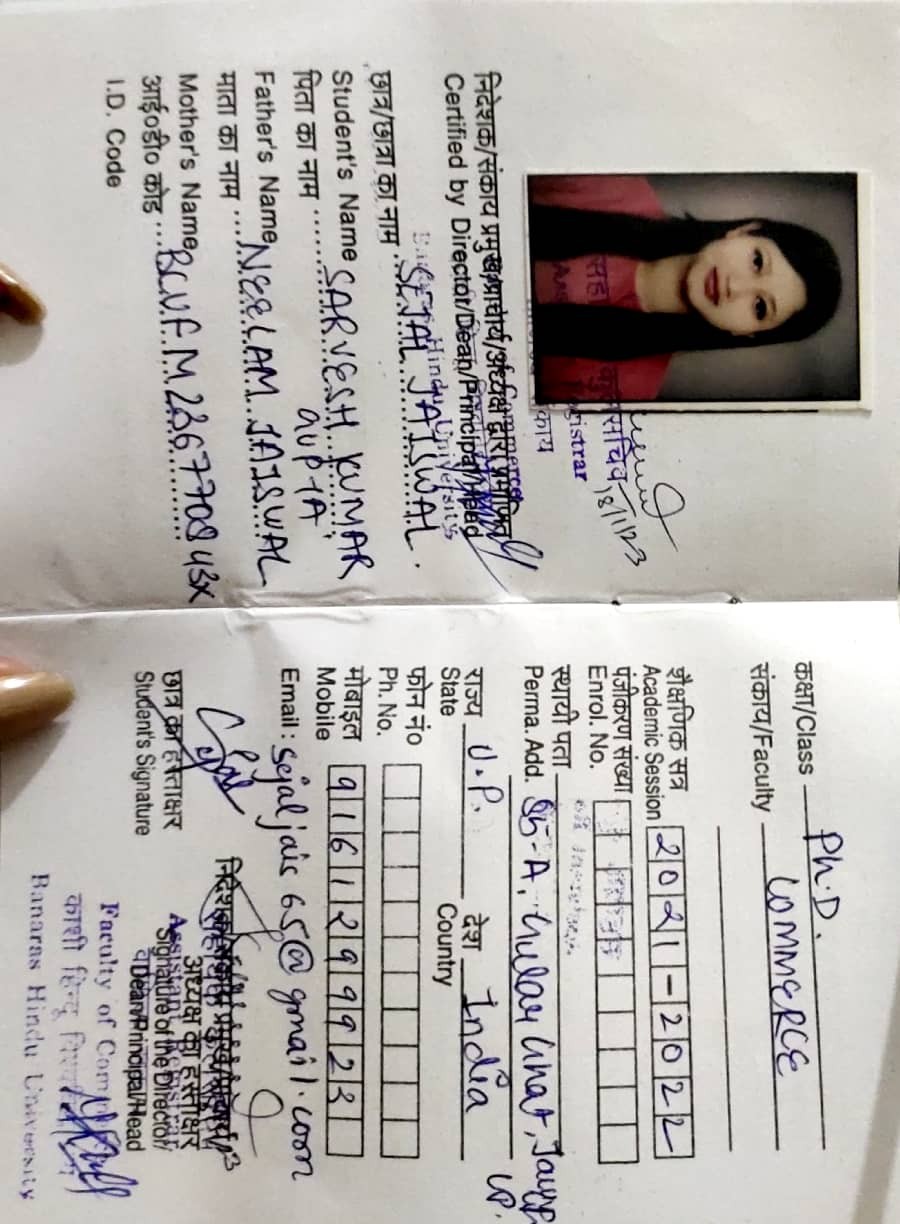 कुलसचिव
Registrar
18/1/23
संकाय
निदेशक/संकाय प्रमुख/प्राचार्य/अध्यक्ष द्वारा प्रमाणित
Certified by Director/Dean/Principal/Head
Hindu University
छात्र/छात्रा का नाम SEJAL JAISWAL.
Student's Name
पिता का नाम SARVESH KUMAR GUPTA
Father's Name
माता का नाम NEELAM JAISWAL
Mother's Name
आई०डी० कोड BCUFM286770843X
I.D. Code
कक्षा/Class Ph.D.
संकाय/Faculty COMMERCE
शैक्षणिक सत्र
Academic Session 2021-2022
पंजीकरण संख्या
Enrol. No.
स्थायी पता
Perma. Add.
राज्य U.P. देश India
State Country
फोन नं०
Ph. No.
मोबाइल 9161299923
Mobile
Email : sejaljais65@gmail.com
छात्र का हस्ताक्षर
Student's Signature
अध्यक्ष का हस्ताक्षर
Signature of the Director/
Dean/Principal/Head
Faculty of
काशी हिन्दू
Banaras Hindu University